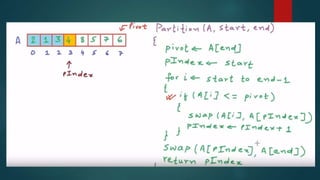 Pivot
Partition (A, start, end)
{
A 2 1 3 4 8 5 7 6
0 1 2 3 4 5 6 7
pIndex
pivot ← A[end]
pIndex ← start
for i ← start to end-1
{
if (A[i] <= pivot)
{
swap (A[i], A[pIndex])
pIndex ← pIndex + 1
} }
swap (A[pIndex], A[end])
return pIndex
}